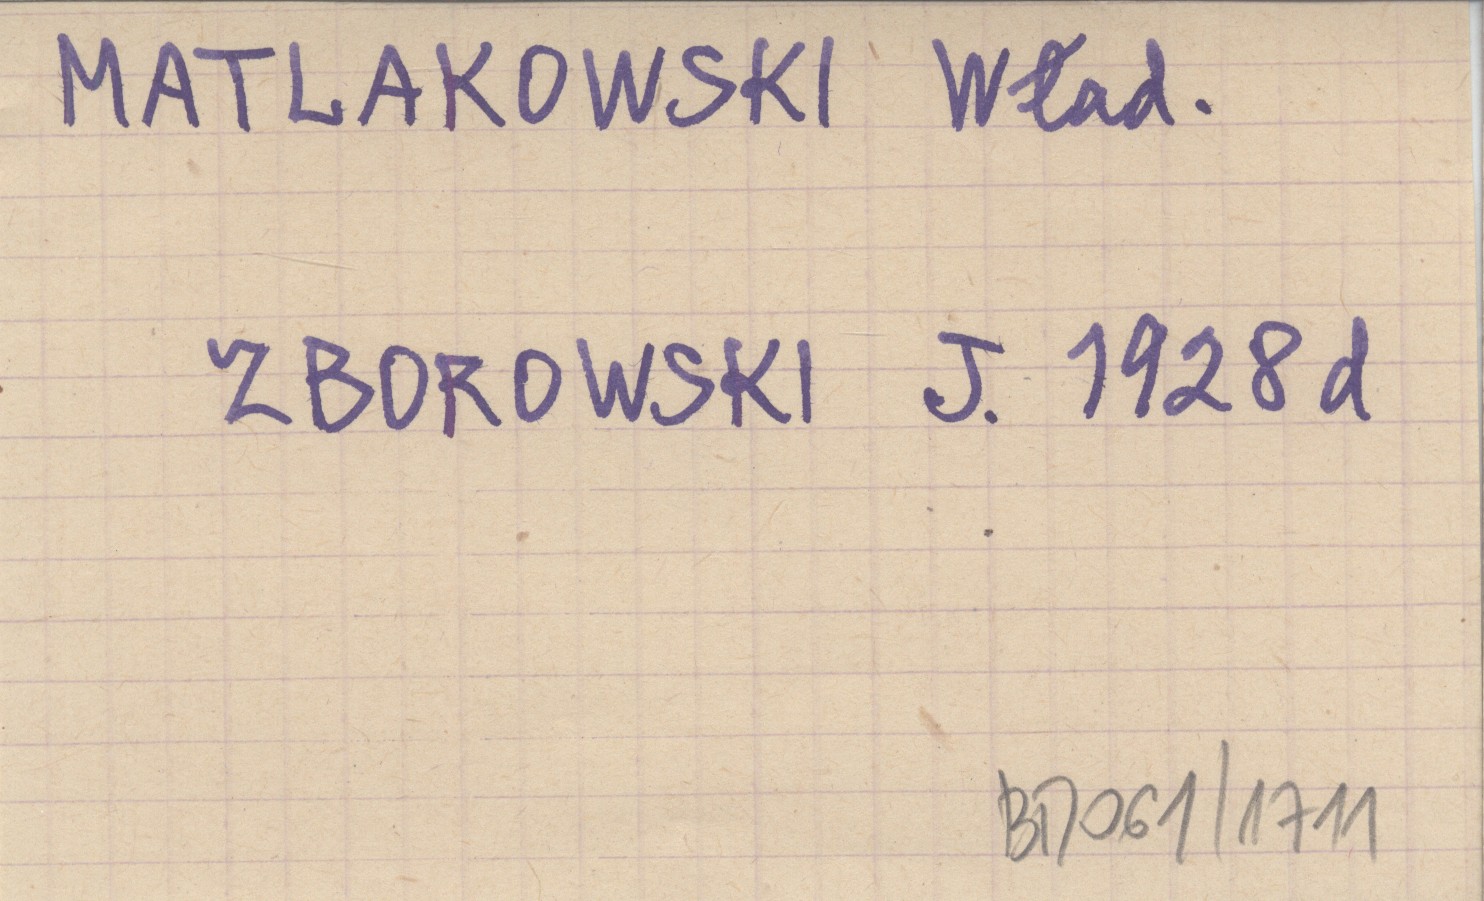 MATLAKOWSKI Wład.
ZBOROWSKI J. 1928d
BD061/1711